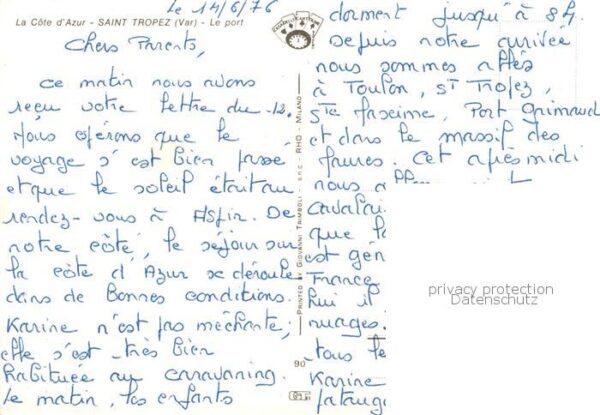 La Côte d'Azur - SAINT TROPEZ (Var) - Le port
le 14/6/76
Chers Parents,
ce matin nous avons
reçu votre lettre du 12.
Nous espérons que le
voyage s'est bien passé
et que le soleil était au
rendez-vous à Aspin. De
notre côté, le séjour sur
la côte d'Azur se déroule
dans de Bonnes conditions.
Karine n'est pas méchante,
elle s'est très bien
habituée au caravaning.
le matin, les enfants
PRINTED BY GIOVANNI TRIMBOLI - s.n.c. - RHO - MILANO
90
dorment jusqu'à 8h.
Depuis notre arrivée
nous sommes allés
à Toulon, St Tropez,
Ste Maxime, Port Grimaud
et dans le massif des
Maures. Cet après midi
nous a
Cavalai
que l
est gén
France
hui il
nuages.
tous le
Karine
patauge
privacy protection
Datenschutz